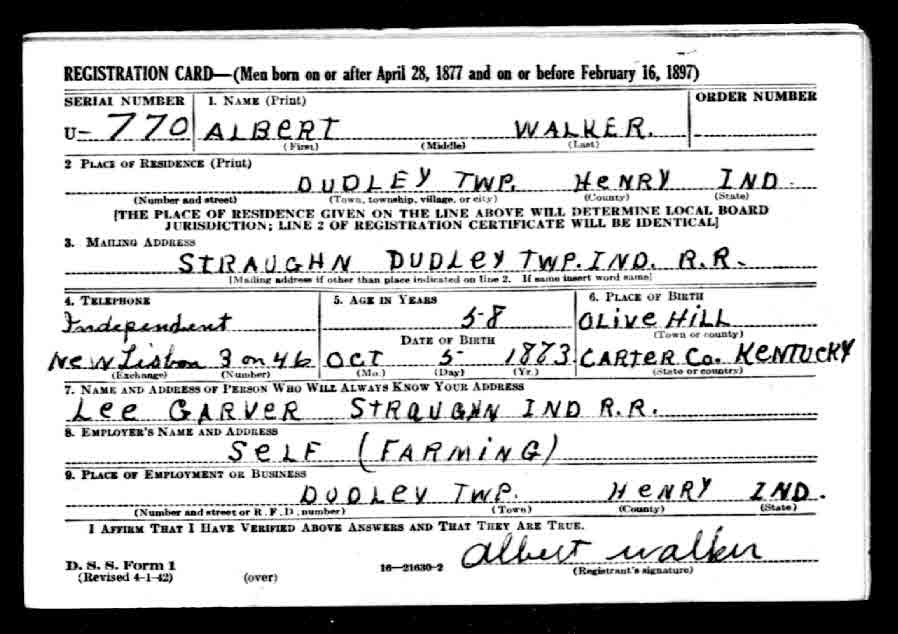 REGISTRATION CARD—(Men born on or after April 28, 1877 and on or before February 16, 1897)
SERIAL NUMBER 1. NAME (Print) ORDER NUMBER
U- 770 ALBERT WALKER.
(First) (Middle) (Last)
2 PLACE OF RESIDENCE (Print)
DUDLEY TWP. HENRY IND.
(Number and street) (Town, township, village, or city) (County) (State)
[THE PLACE OF RESIDENCE GIVEN ON THE LINE ABOVE WILL DETERMINE LOCAL BOARD
JURISDICTION; LINE 2 OF REGISTRATION CERTIFICATE WILL BE IDENTICAL]
3. MAILING ADDRESS
STRAUGHN DUDLEY TWP. IND. R.R.
[Mailing address if other than place indicated on line 2. If same insert word same]
4. TELEPHONE 5. AGE IN YEARS 6. PLACE OF BIRTH
Independent 58 OLIVE HILL
DATE OF BIRTH (Town or county)
New Lisbon 3 on 46 OCT 5- 1873 CARTER Co. KENTUCKY
(Exchange) (Number) (Mo.) (Day) (Yr.) (State or country)
7. NAME AND ADDRESS OF PERSON WHO WILL ALWAYS KNOW YOUR ADDRESS
LEE GARVER STRAUGHN IND R.R.
8. EMPLOYER'S NAME AND ADDRESS
SELF (FARMING)
9. PLACE OF EMPLOYMENT OR BUSINESS
DUDLEY TWP. HENRY IND.
(Number and street or R. F. D. number) (Town) (County) (State)
I AFFIRM THAT I HAVE VERIFIED ABOVE ANSWERS AND THAT THEY ARE TRUE.
Albert Walker
D. S. S. Form 1 16—21630-2 (Registrant's signature)
(Revised 4-1-42) (over)